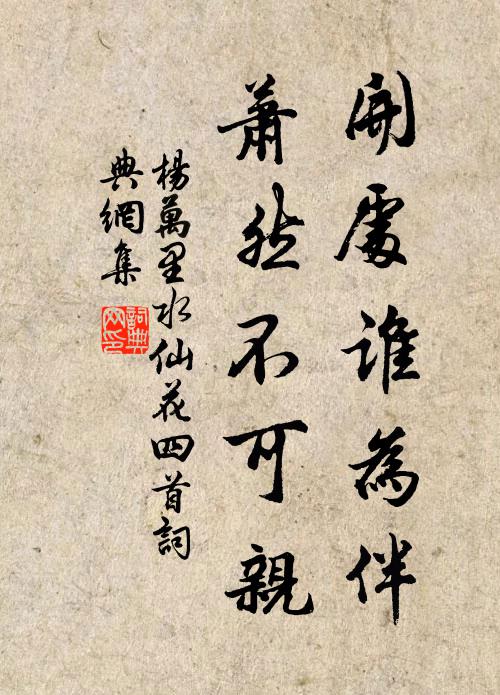 開處誰為伴
蕭然不可親
楊萬里水仙花四首詞
典網集
詞典
網印